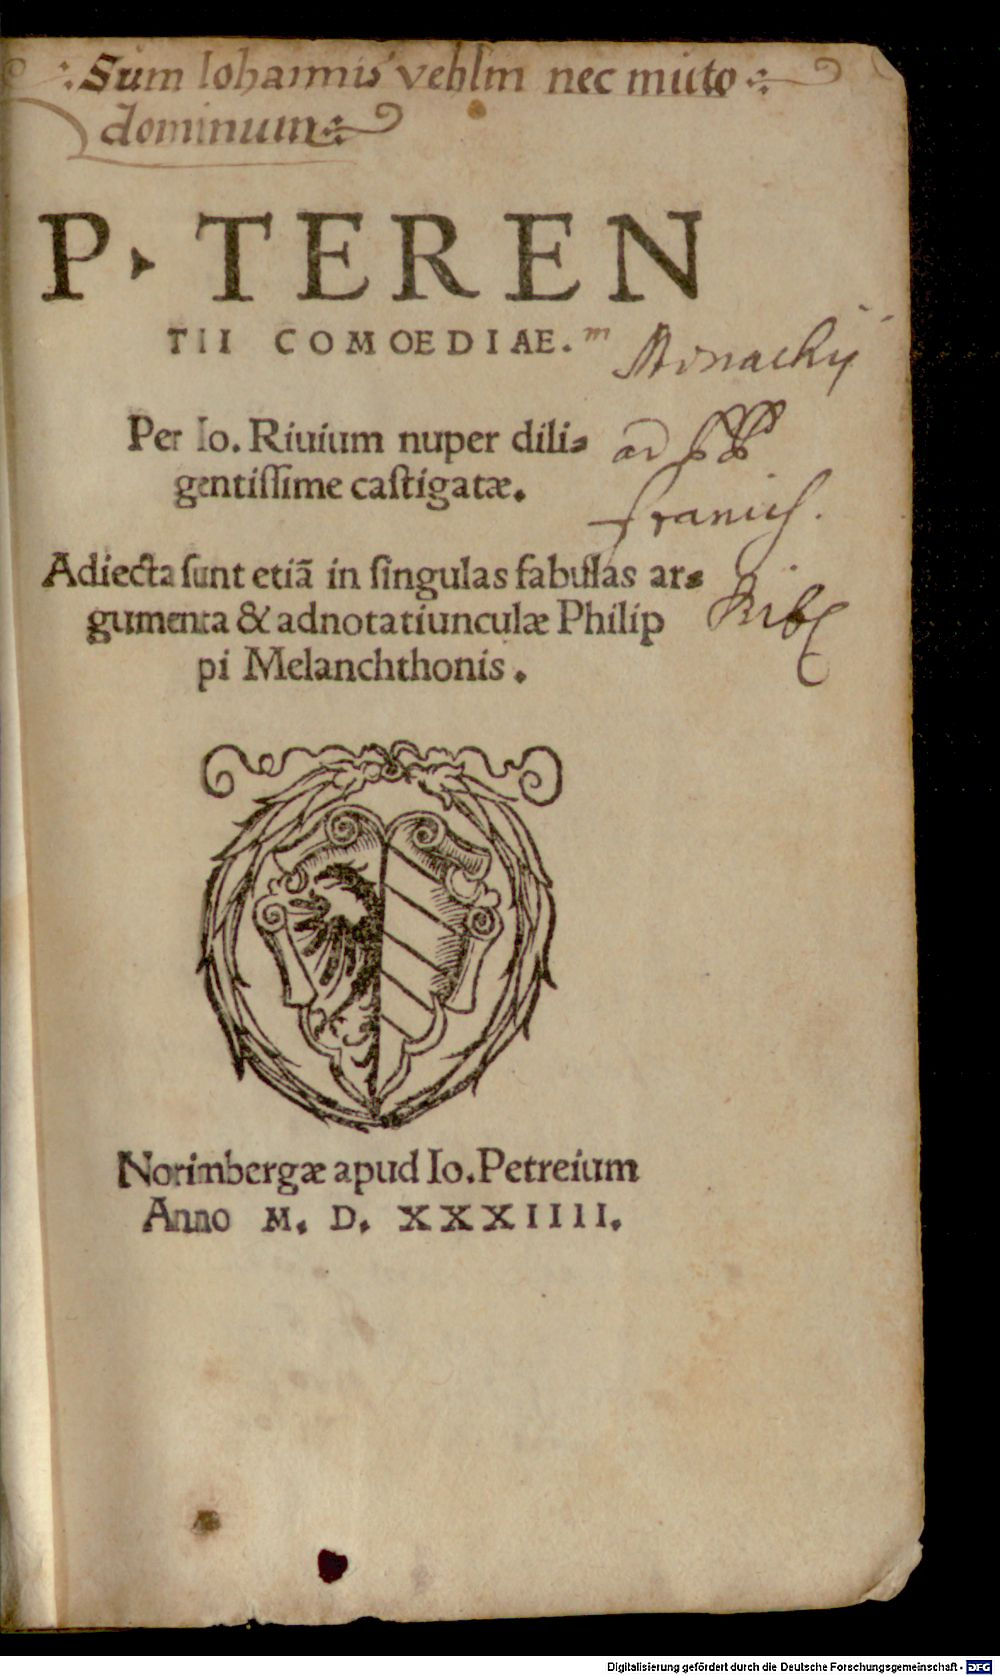 Sum Iohannis vehlin nec muto
dominum
P. TEREN
TII COMOEDIAE.
Monachij
Per Io. Riuium nuper dili-
gentissime castigatæ.
ad PP
francisc.
Adiecta sunt etiã in singulas fabulas ar-
gumenta & adnotatiunculæ Philip
pi Melanchthonis.
Norimbergæ apud Io. Petreium
Anno M. D. XXXIIII.
Digitalisierung gefördert durch die Deutsche Forschungsgemeinschaft - DFG